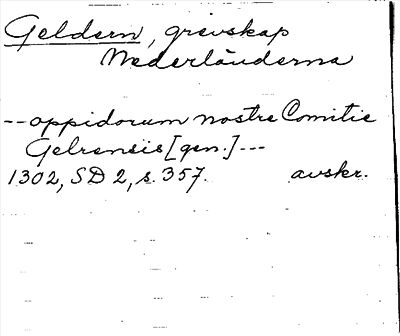 Geldern, grevskap
Nederländerna
-- oppidorum nostre Comitie
Gelrensis [gen.] ---
1302, SD 2, s. 357. avskr.